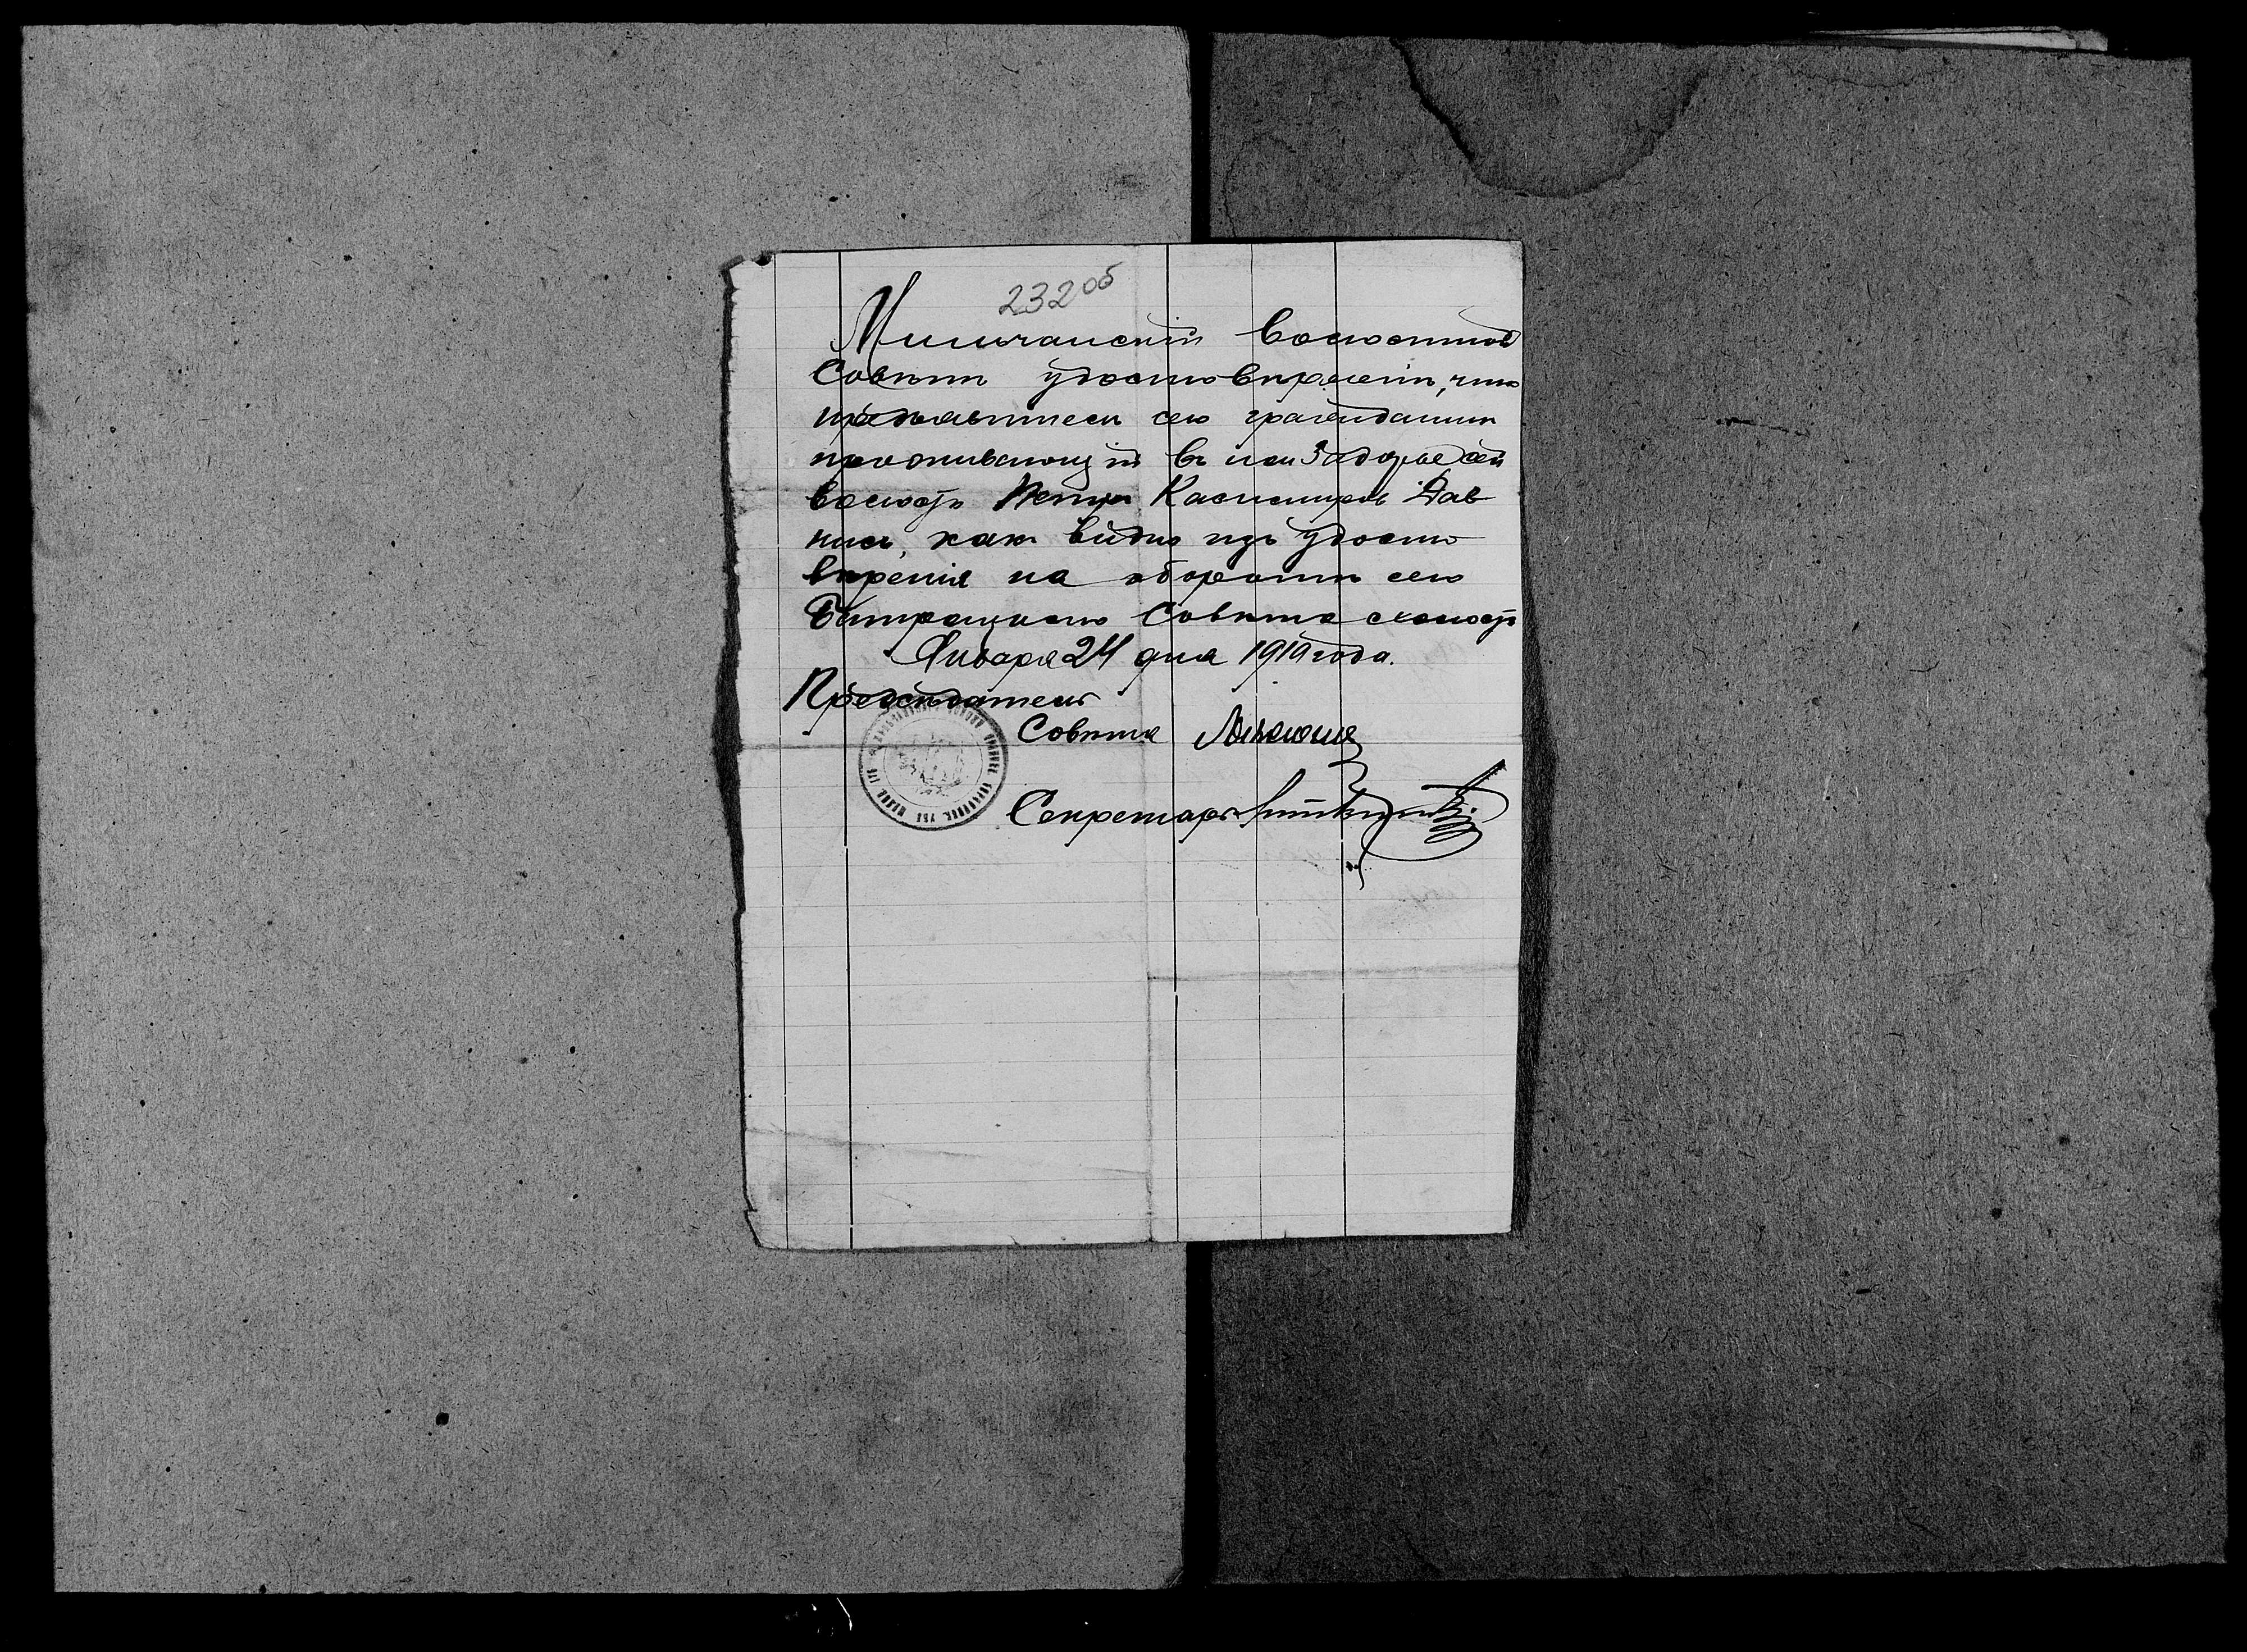 232 об
Мильчанскій Волостной
Совѣтъ удостовѣряетъ, что
предъявитель сего гражданинъ
проживающій въ им Задорье сей
волости Петръ Казимировъ Дав
нисъ, какъ видно изъ удосто
вѣренія на оборотѣ сего
Батрацкаго Совѣта с волости
Января 24 дня 1919 года.
Предсѣдатель
Совѣта
Секретарь